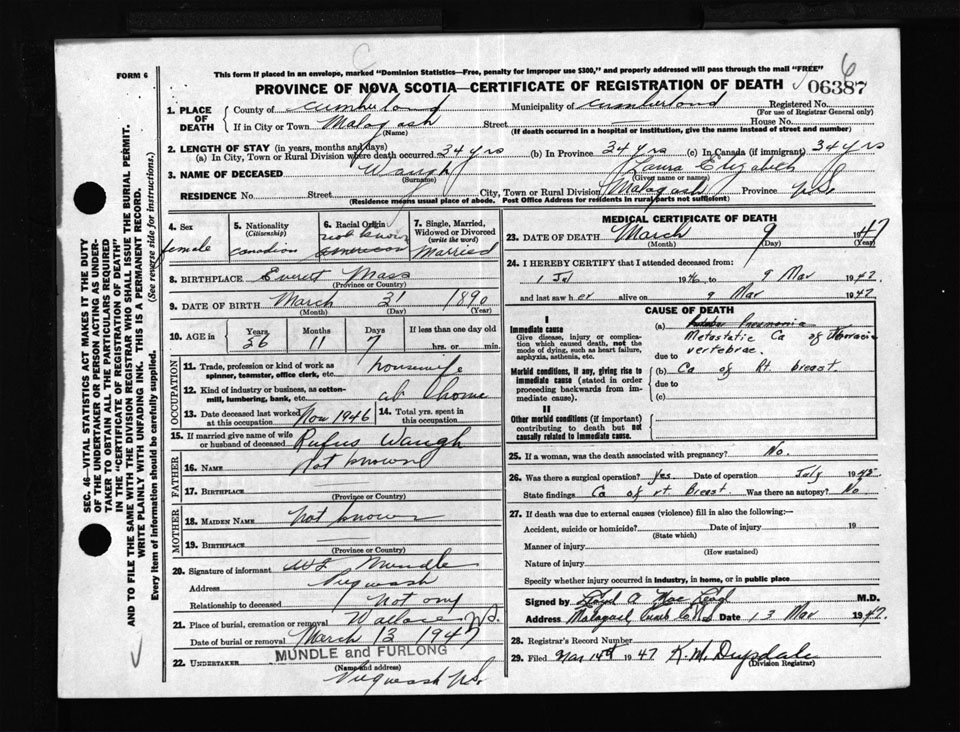 This form if placed in an envelope, marked "Dominion Statistics—Free, penalty for improper use $300," and properly addressed will pass through the mail "FREE"
FORM 6
PROVINCE OF NOVA SCOTIA—CERTIFICATE OF REGISTRATION OF DEATH
6
06387
1. PLACE OF DEATH County of Cumberland Municipality of Cumberland Registered No.
(For use of Registrar General only)
If in City or Town Malagash Street House No.
(Name) (If death occurred in a hospital or institution, give the name instead of street and number)
2. LENGTH OF STAY (in years, months and days)
(a) In City, Town or Rural Division where death occurred 34 yrs (b) In Province 34 yrs (c) In Canada (if immigrant) 34 yrs
3. NAME OF DECEASED Waugh Laura Elizabeth
(Surname) (Given name or names)
RESIDENCE No. Street City, Town or Rural Division Malagash Province N.S.
(Residence means usual place of abode. Post Office Address for residents in rural parts not sufficient)
4. Sex female
5. Nationality (Citizenship) Canadian
6. Racial Origin not known American
7. Single, Married, Widowed or Divorced (write the word) Married
8. BIRTHPLACE Everett Mass
(Province or Country)
9. DATE OF BIRTH March 31 1890
(Month) (Day) (Year)
10. AGE in Years 56 Months 11 Days 7 If less than one day old hrs. or min.
OCCUPATION
11. Trade, profession or kind of work as spinner, teamster, office clerk, etc. housewife
12. Kind of industry or business, as cotton-mill, lumbering, bank, etc. at home
13. Date deceased last worked at this occupation Nov 1946 14. Total yrs. spent in this occupation
15. If married give name of wife or husband of deceased Rufus Waugh
FATHER
16. NAME Not known
17. BIRTHPLACE
(Province or Country)
MOTHER
18. MAIDEN NAME not known
19. BIRTHPLACE
(Province or Country)
20. Signature of informant Mundle
Address Pugwash
Relationship to deceased not any
21. Place of burial, cremation or removal Wallace N.S.
Date of burial or removal March 13 1947
22. UNDERTAKER MUNDLE and FURLONG
(Name and address)
Pugwash N.S.
MEDICAL CERTIFICATE OF DEATH
23. DATE OF DEATH March 9 1947
(Month) (Day) (Year)
24. I HEREBY CERTIFY that I attended deceased from:
1 Jul 1946 to 9 Mar 1947
and last saw her alive on 9 Mar 1947
CAUSE OF DEATH
I
Immediate cause
Give disease, injury or complication which caused death, not the mode of dying, such as heart failure, asphyxia, asthenia, etc.
(a) Pneumonia
Metastatic Ca of Thoracic
due to vertebrae.
Morbid conditions, if any, giving rise to immediate cause (stated in order proceeding backwards from immediate cause).
(b) Ca of Rt. breast.
due to
(c)
II
Other morbid conditions (if important) contributing to death but not causally related to immediate cause.
25. If a woman, was the death associated with pregnancy? No.
26. Was there a surgical operation? Yes. Date of operation July 1945
State findings Ca of rt Breast. Was there an autopsy? No
27. If death was due to external causes (violence) fill in also the following:—
Accident, suicide or homicide? Date of injury 19
(State which)
Manner of injury
(How sustained)
Nature of injury
Specify whether injury occurred in industry, in home, or in public place
Signed by Lloyd A. MacLeod M.D.
Address Date 13 Mar 1947.
28. Registrar's Record Number
29. Filed Mar 14th 1947 K. M.
(Division Registrar)
SEC. 46—VITAL STATISTICS ACT MAKES IT THE DUTY
OF THE UNDERTAKER OR PERSON ACTING AS UNDERTAKER TO OBTAIN ALL THE PARTICULARS REQUIRED
IN THE "CERTIFICATE OF REGISTRATION OF DEATH"
AND TO FILE THE SAME WITH THE DIVISION REGISTRAR WHO SHALL ISSUE THE BURIAL PERMIT.
WRITE PLAINLY WITH UNFADING INK. THIS IS A PERMANENT RECORD.
Every item of information should be carefully supplied. (See reverse side for instructions.)